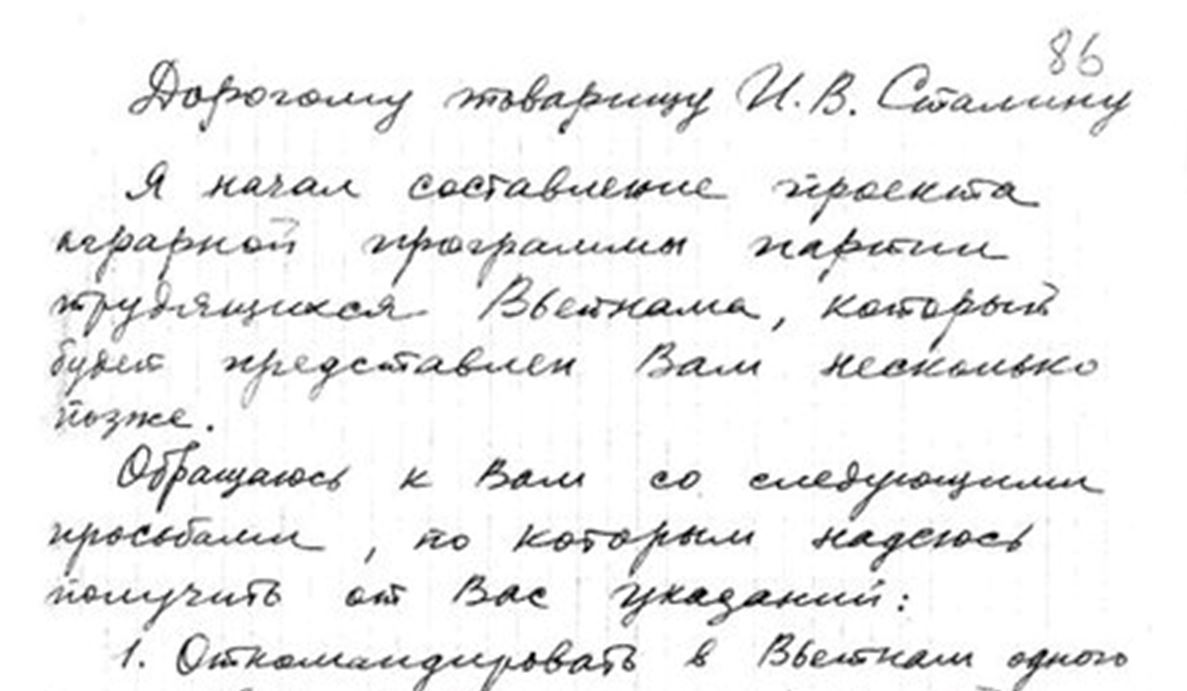 86
Дорогому товарищу И. В. Сталину
Я начал составление проекта
аграрной программы партии
трудящихся Вьетнама, который
будет представлен Вам несколько
позже.
Обращаюсь к Вам со следующими
просьбами, по которым надеюсь
получить от Вас указаний:
1. Откомандировать в Вьетнам одного